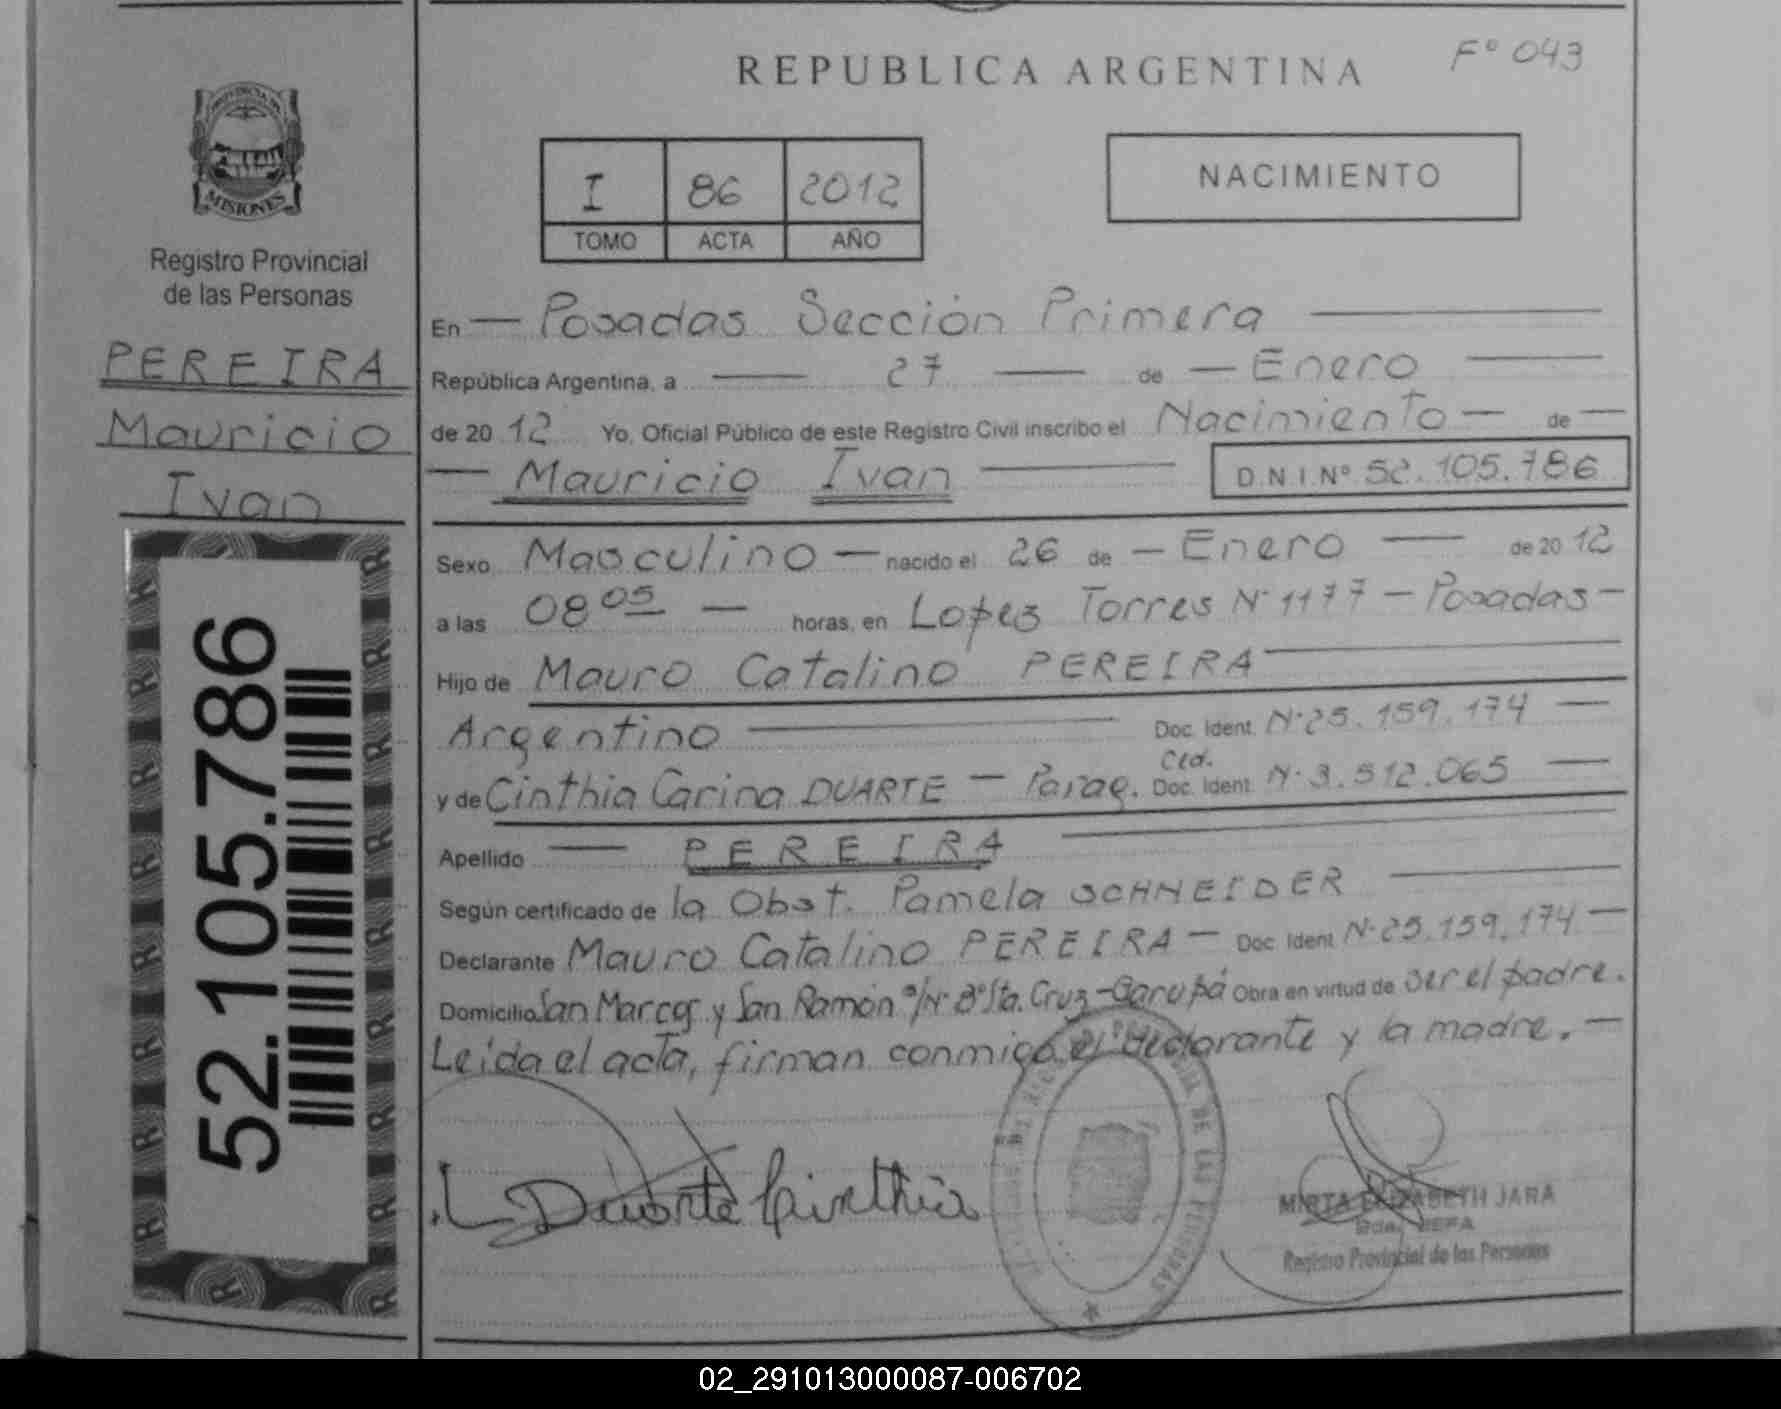 REPUBLICA ARGENTINA
Fº 043
PROVINCIA DE
MISIONES
Registro Provincial
de las Personas
PEREIRA
Mauricio
Ivan
52.105.786
I 86 2012
TOMO ACTA AÑO
NACIMIENTO
En — Posadas Sección Primera —
República Argentina, a — 27 — de — Enero —
de 20 12 Yo, Oficial Público de este Registro Civil inscribo el Nacimiento — de —
— Mauricio Ivan — D.N.I.Nº 52.105.786
Sexo Masculino — nacido el 26 de — Enero — de 20 12
a las 08 05 — horas, en Lopez Torres Nº 1177 — Posadas —
Hijo de Mauro Catalino PEREIRA —
Argentino — Doc. Ident. Nº 25.159.174 —
Ced.
y de Cinthia Carina DUARTE — Parag. Doc. Ident. Nº 3.512.065 —
Apellido — PEREIRA —
Según certificado de la Obst. Pamela SCHNEIDER —
Declarante Mauro Catalino PEREIRA — Doc. Ident. Nº 25.159.174 —
Domicilio San Marcos y San Ramón s/Nº Bº Sta. Cruz - Garupá Obra en virtud de ser el padre.
Leída el acta, firman conmigo el declarante y la madre. —
Duarte Cinthia
DE LAS PERSONAS
MIRTA ELIZABETH JARA
Registro Provincial de las Personas
02_291013000087-006702